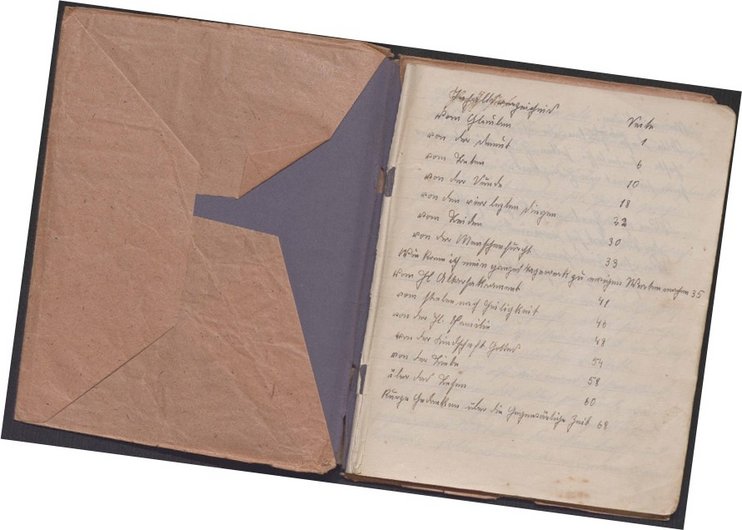 Inhaltsverzeichnis
Vom Glauben Seite 1
von der Demut 6
vom Beten 10
von der Sünde 18
von den vier letzten Dingen 22
vom Leiden 30
von der Menschenfurcht 33
Wie kann ich mein ganzes Tagewerk zu ewigen Werten machen 35
vom hl Altarssakrament 41
vom Streben nach Heiligkeit 46
von der hl. Familie 48
von der Kindschaft Gottes 54
von der Liebe 58
über das 60
Kurze Gedanken über die Gegenwärtige Zeit 68